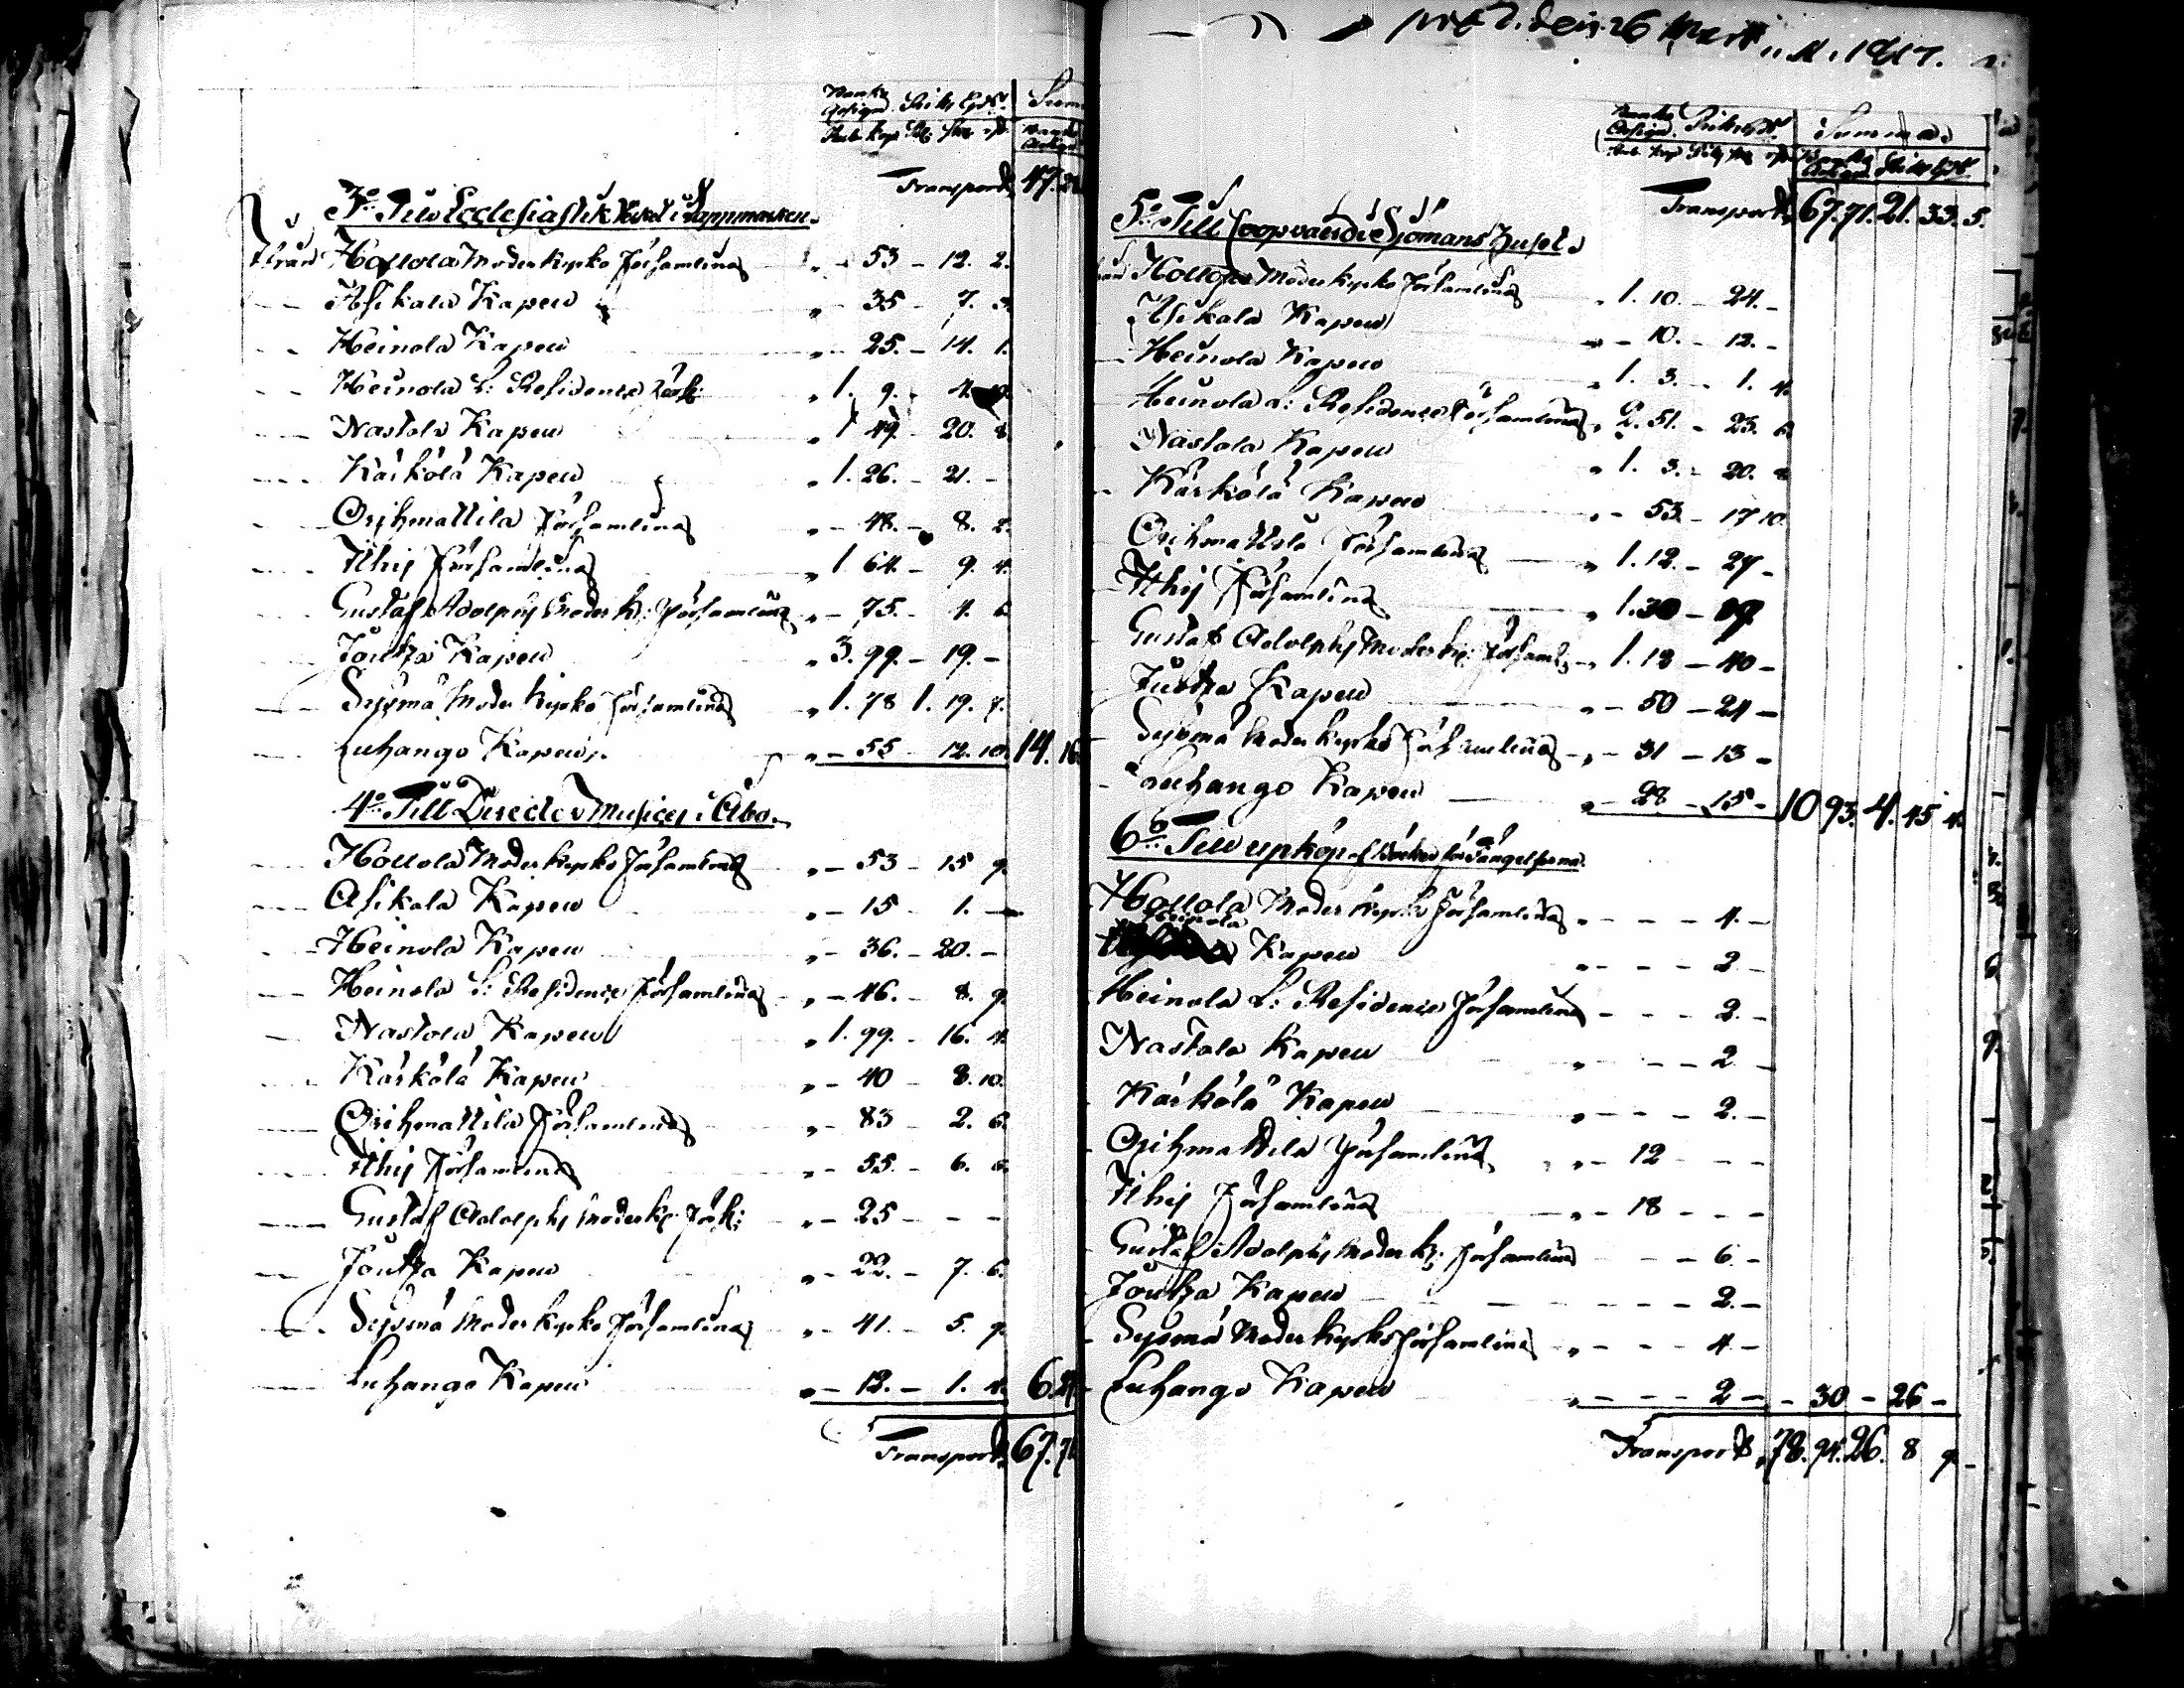 Banko Assign. Riks Gds. Sum
Rub. Kop. Rdr. sk. rst. Banko Assign
Transport 47.
3o Till Ecclesiastik Verket i Lappmarken.
Från Hollola Moder Kyrko Församling " - 53 - 12. 2.
Asikala Kapell " - 35 - 7.
Heinola Kapell " - 25. - 14. 1.
Heinola L: Residence Förs: " 1. 9. - 4.
Nastola Kapell " 1 49. - 20. 8.
Kärkölä Kapell " 1. 26. - 21. -
Orihmattila Församling " - 48. - 8. 2.
Ithis Församling " 1. 64. - 9. 4.
Gustaf Adolphs Moder k: Församling " - 75. - 4. 6.
Joutza Kapell " 3. 99. - 19. -
Sysmä Moder Kyrko Församling " 1. 78 1. 19. 7.
Luhango Kapell " - 55 - 12. 10. 14. 16
4o Till Director Musices i Åbo.
Hollola Moder Kyrko Församling " - 53 - 15 9.
Asikala Kapell " - 15 - 1. -
Heinola Kapell " - 36. - 20. -
Heinola L: Residence Församling " - 46. - 8. 9.
Nastola Kapell " 1. 99. - 16. 4.
Kärkölä Kapell " - 40 - 8. 10.
Orihmattila Församling " - 83 - 2. 6.
Ithis Församling " - 55. - 6. 6.
Gustaf Adolphs Moder k: Förs: " - 25 - - -
Joutza Kapell " - 22. - 7. 6.
Sysmä Moder Kyrko Församling " - 41. - 5. 9.
Luhango Kapell " - 12. - 1. 4. 6.
Transport 67. 71
den 26 Martii 1817.
Banko Assign. Riks Gds. Summa
Rub. Kop. Rdr. sk. rst. Banko Assign. Riks Gds.
Transport 67. 71. 21. 33. 5.
5o Till Coopvaerdie Sjömans Huset
Från Hollola Moder Kyrko Församling " 1. 10. - 24. -
Asikala Kapell " - 10. - 12. -
Heinola Kapell " 1. 3. - 1. 4.
Heinola L: Residence Församling " 2. 51. - 23. 6.
Nastola Kapell " 1. 3. - 20. 8
Kärkölä Kapell " - 53. - 17 10.
Orihmattila Församling " 1. 12. - 27 -
Ithis Församling " 1. 30 -
Gustaf Adolphs Moder k: Församl: " 1. 12 - 40 -
Joutza Kapell " - 50 - 24 -
Sysmä Moder Kyrko Församling " - 31 - 13 -
Luhango Kapell " - 28 - 15 - 10 93. 4. 45 4.
6o Till upköp af Böcker för Fångelserna.
Hollola Moder Kyrko Församling " - - - 4. -
Heinola Kapell " - - - 2 -
Heinola L: Residence Församling - - - 2. -
Nastola Kapell " - - - 2 -
Kärkölä Kapell " - - - 2. -
Orihmattila Församling " - 12 - - -
Ithis Församling " - 18 - - -
Gustaf Adolphs Moder k: Församling - - 6. -
Joutza Kapell - - - 2. -
Sysmä Moder Kyrko Församling " - - - 4 -
Luhango Kapell " - - - 2 - - 30 - 26 -
Transport 78. 94. 26. 8 9. -